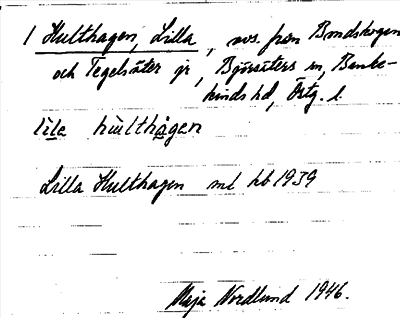 1 Hulthagen, Lilla, avs. från Brudskogen
och Tegelsäter jr, Björsäters sn, Banke-
kinds hd, Östg. l.
lìla hùlthagen
Lilla Hulthagen ml hb 1939
Maja Nordlund 1946.